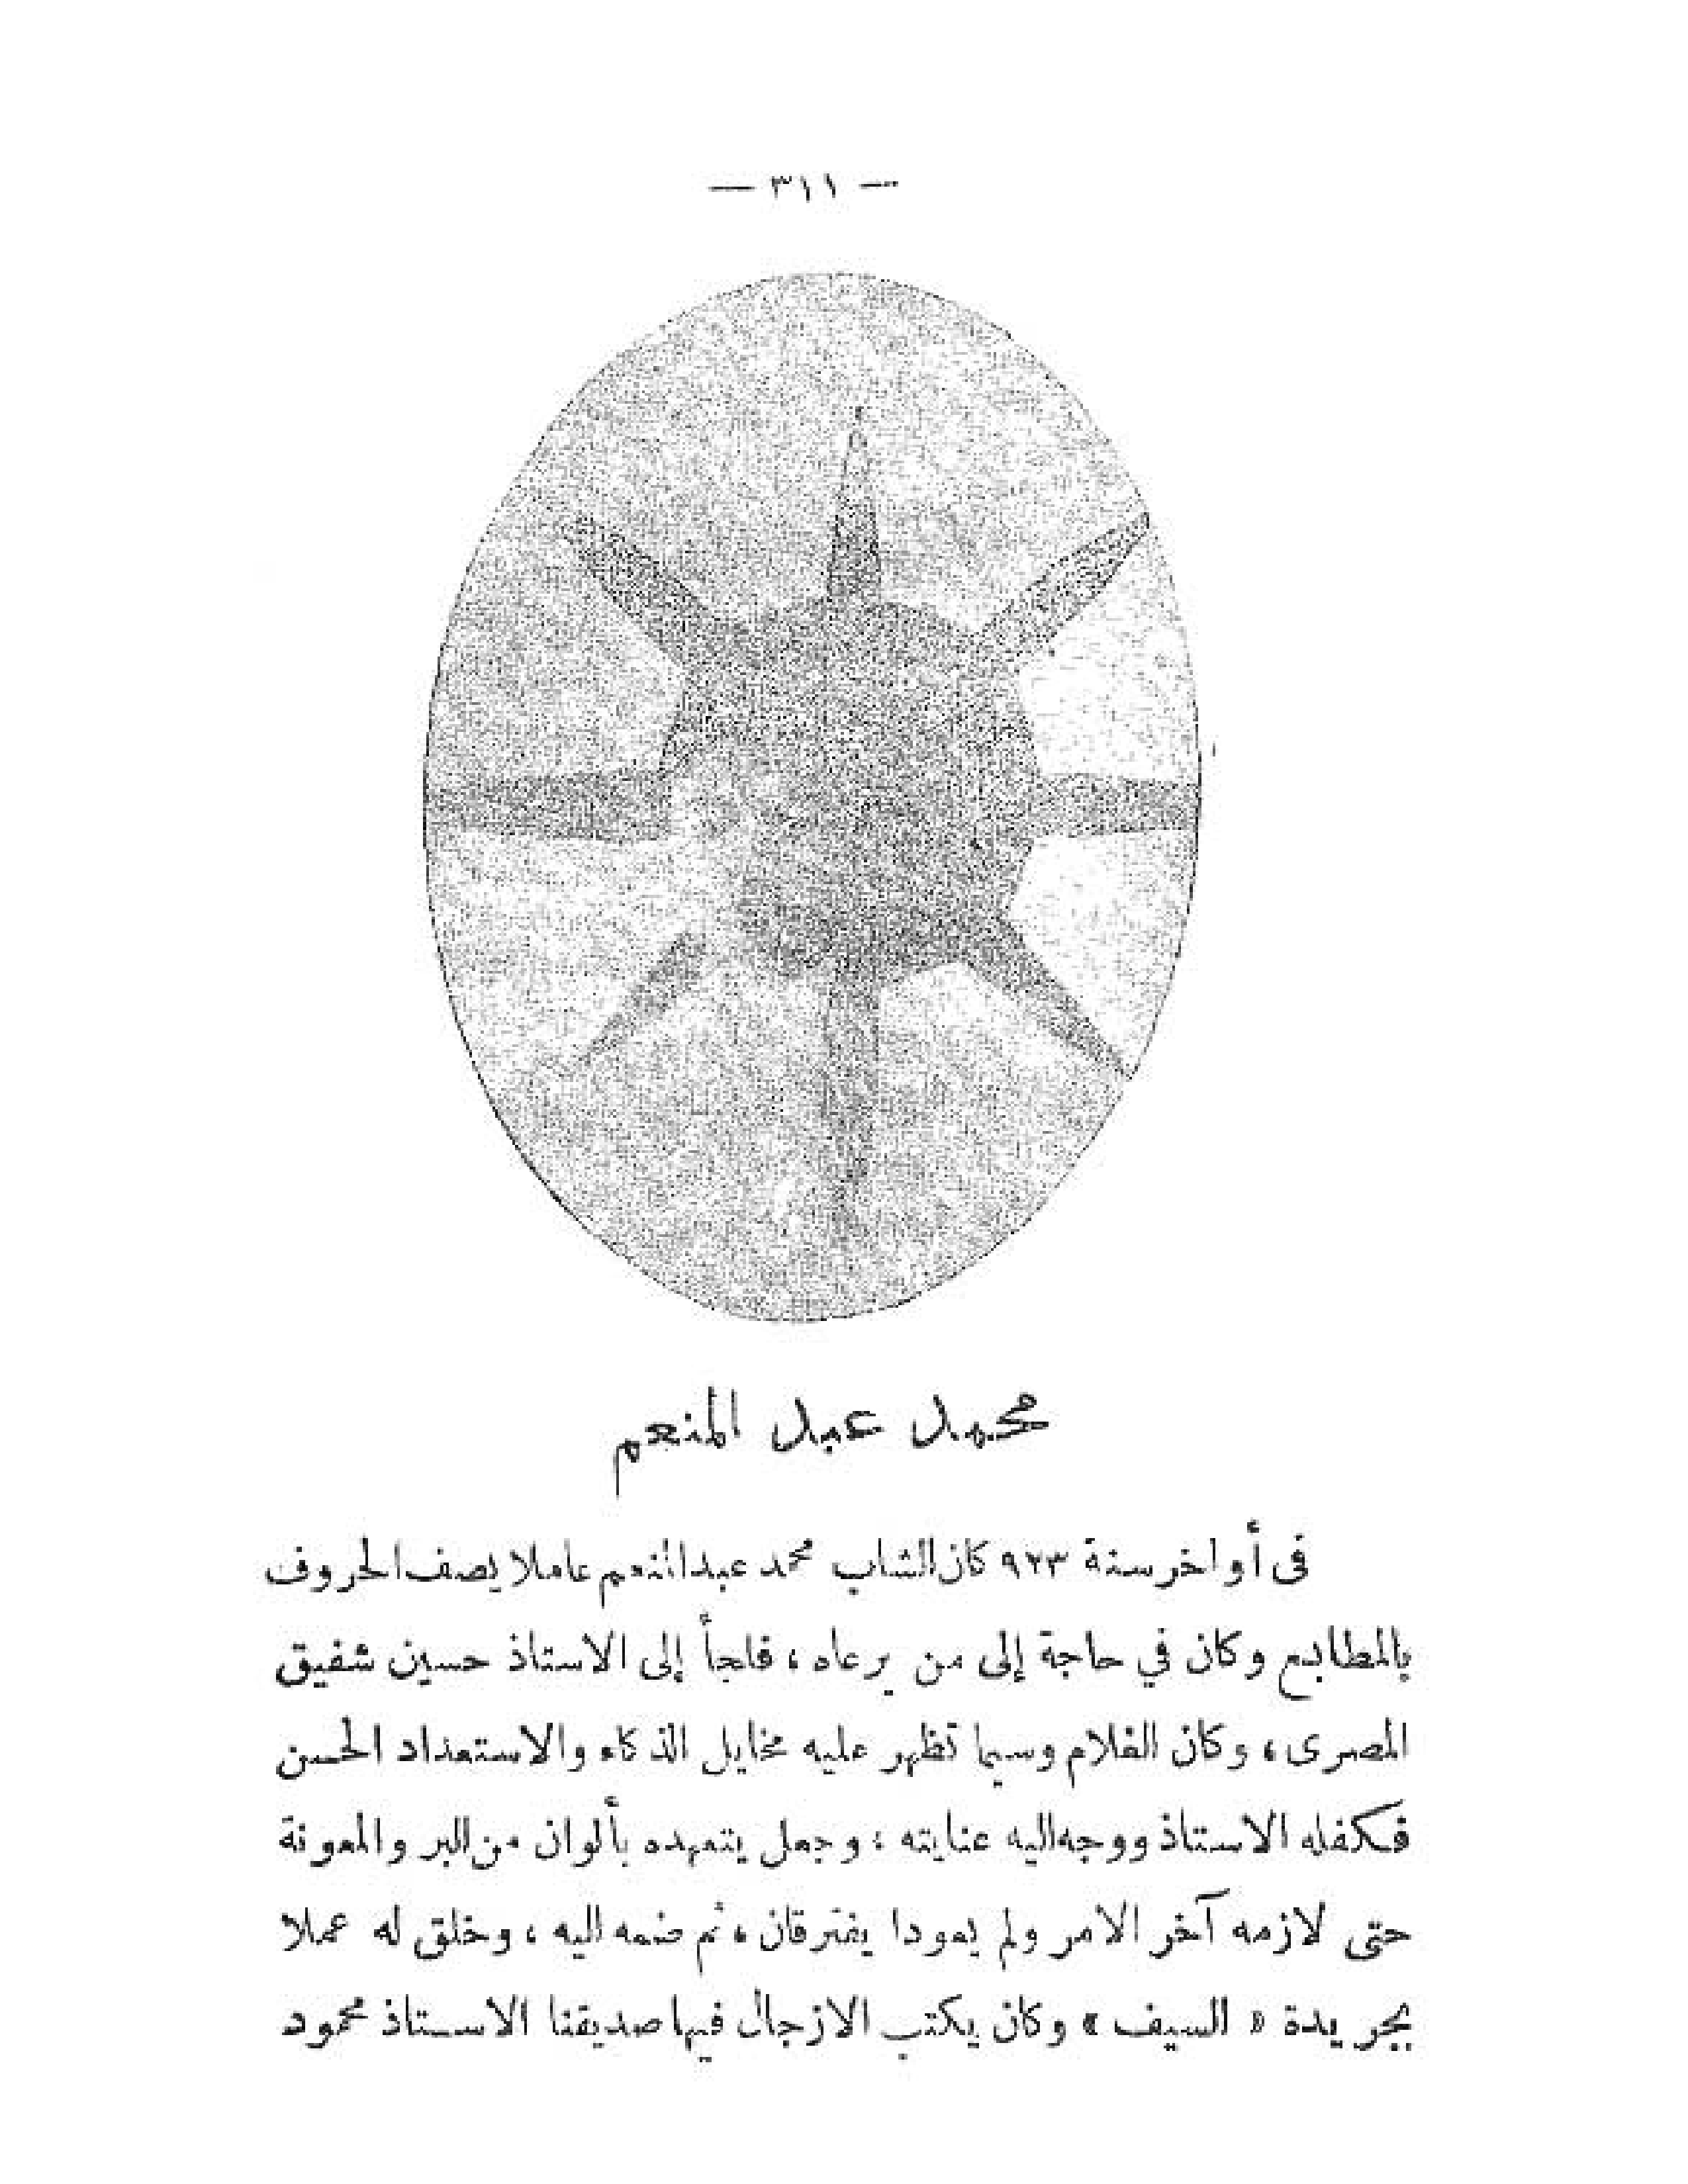 — ٣١١ —
محمد عبد المنعم
فى أواخر سنة ٩٢٣ كان الشاب محمد عبد المنعم عاملا يصف الحروف
بالمطابع وكان في حاجة إلى من يرعاه ، فلجأ إلى الاستاذ حسين شفيق
المصرى ، وكان الغلام وسيما تظهر عليه مخايل الذكاء والاستعداد الحسن
فكفله الاستاذ ووجه اليه عنايته ؛ وجعل يتعهده بألوان من البر والمعونة
حتى لازمه آخر الامر ولم يعودا يفترقان ، ثم ضمه اليه ، وخلق له عملا
بجريدة « السيف » وكان يكتب الازجال فيها صديقنا الاستاذ محمود